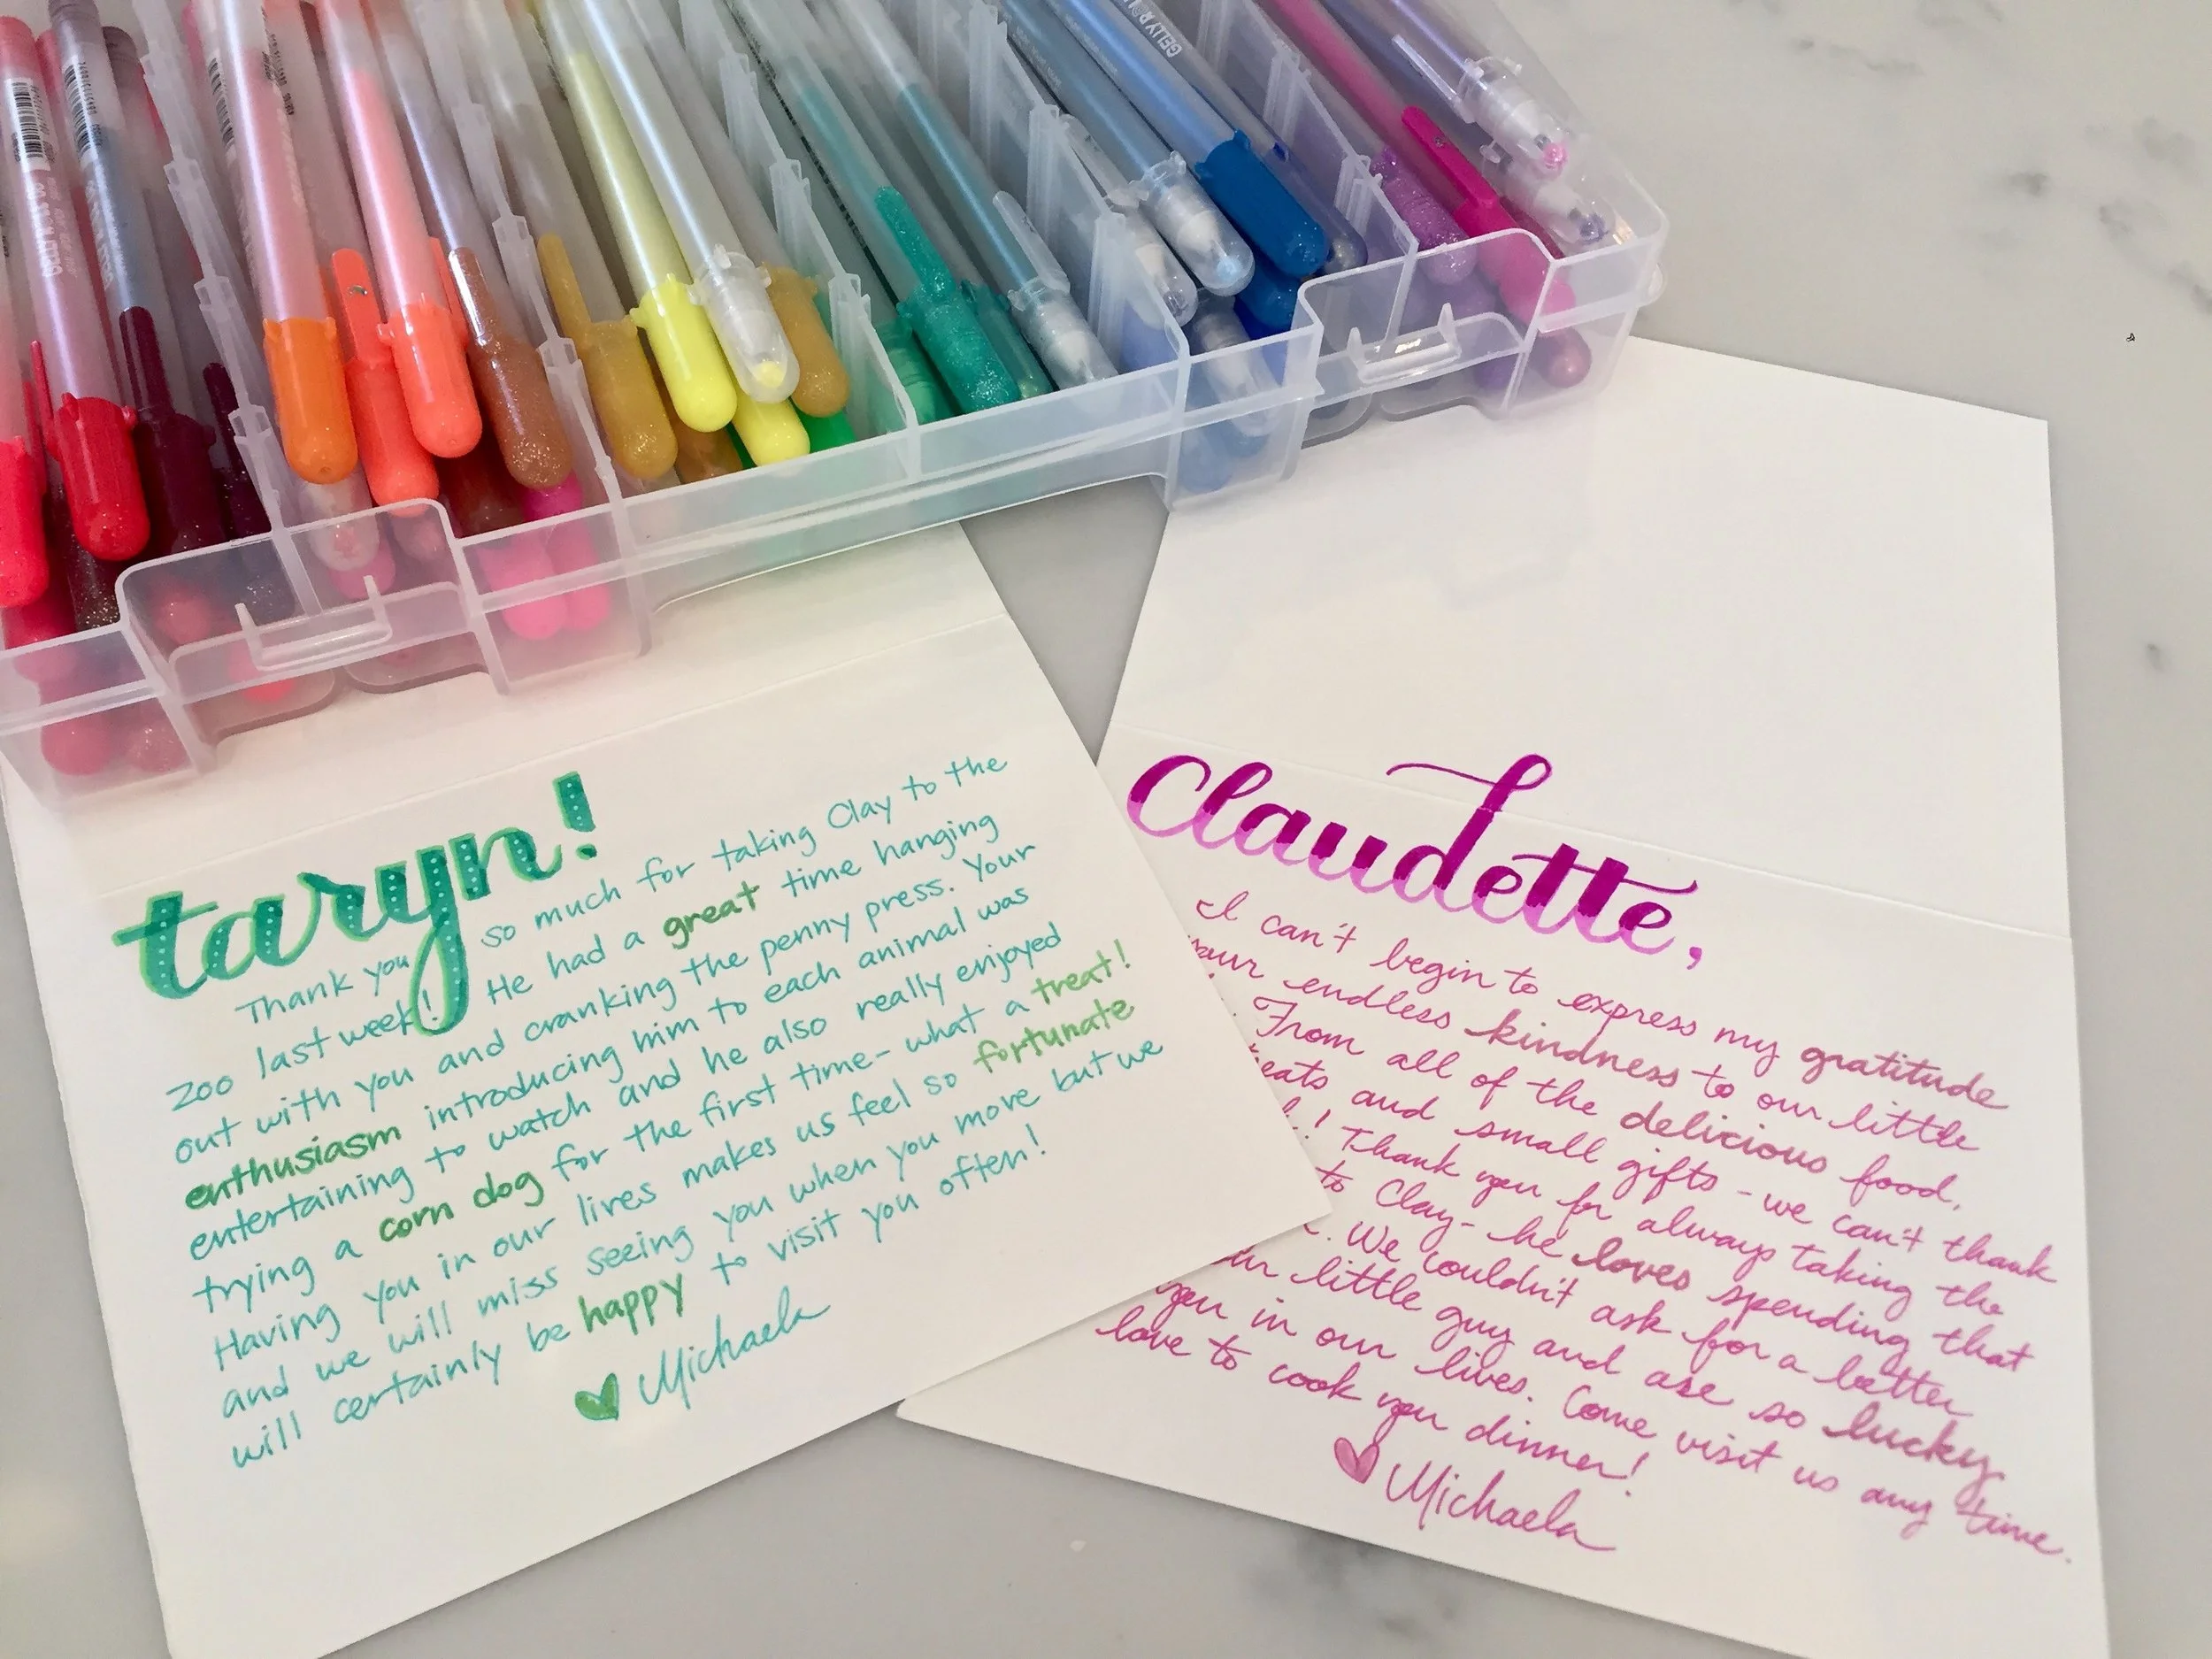 GELLY ROLL
taryn!
Thank you so much for taking Clay to the
zoo last week! He had a great time hanging
out with you and cranking the penny press. Your
enthusiasm introducing him to each animal was
entertaining to watch and he also really enjoyed
trying a corn dog for the first time- what a treat!
Having you in our lives makes us feel so fortunate
and we will miss seeing you when you move but we
will certainly be happy to visit you often!
Michaela
Claudette,
I can't begin to express my gratitude
your endless kindness to our little
From all of the delicious food,
eats and small gifts - we can't thank
! Thank you for always taking the
to Clay- he loves spending that
. We couldn't ask for a better
our little guy and are so lucky
you in our lives. Come visit us any time.
love to cook you dinner!
Michaela